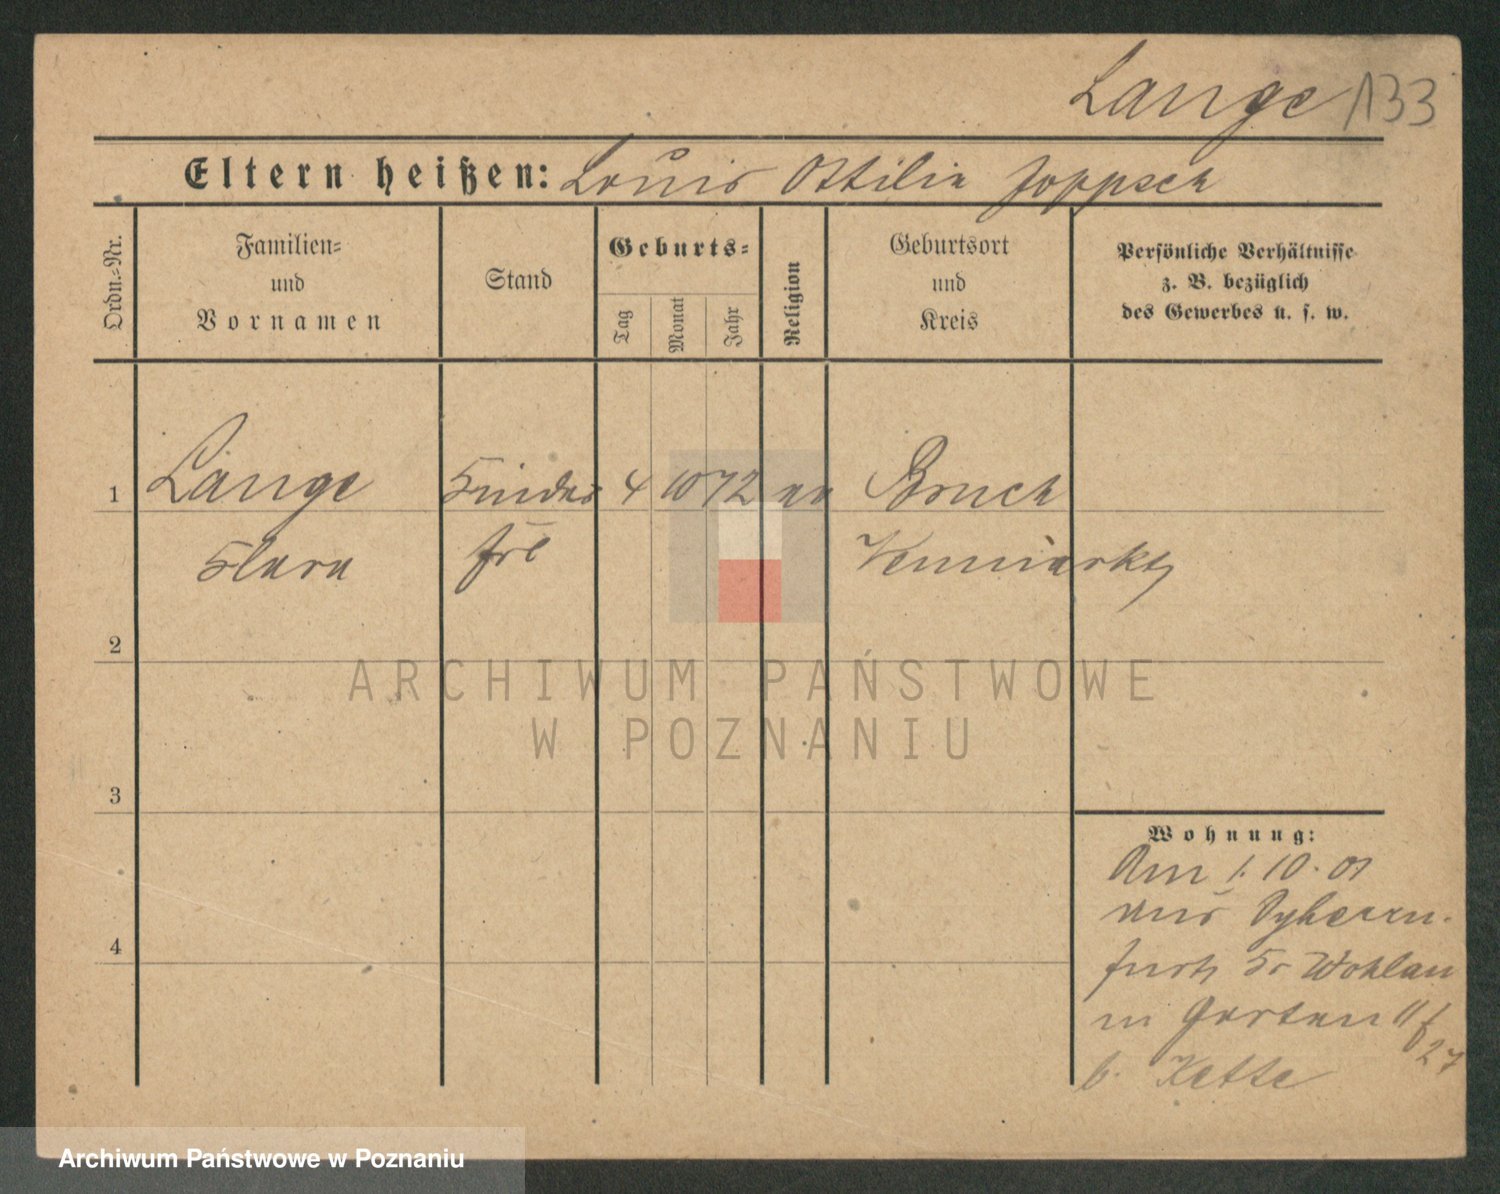 Lange 133
Eltern heißen: Louis Ottilie Joppsch
Ordn.-Nr.
Familien-
und
Vornamen
Stand
Geburts-
Tag
Monat
Jahr
Religion
Geburtsort
und
Kreis
Persönliche Verhältnisse
z. B. bezüglich
des Gewerbes u. s. w.
1 Lange Kinder 4 10 72 ev Bruch
Klara frl Neumarkt
2
ARCHIWUM PAŃSTWOWE
W POZNANIU
3
4
Wohnung:
Am 1. 10. 01
aus Dyhern-
furth Kr Wohlau
in Garten
27
b. Kette
Archiwum Państwowe w Poznaniu